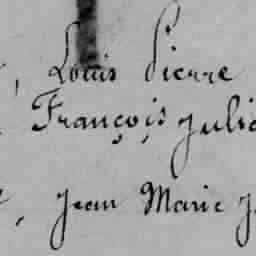 , Louis Pierre
François Julie
, Jean Marie J